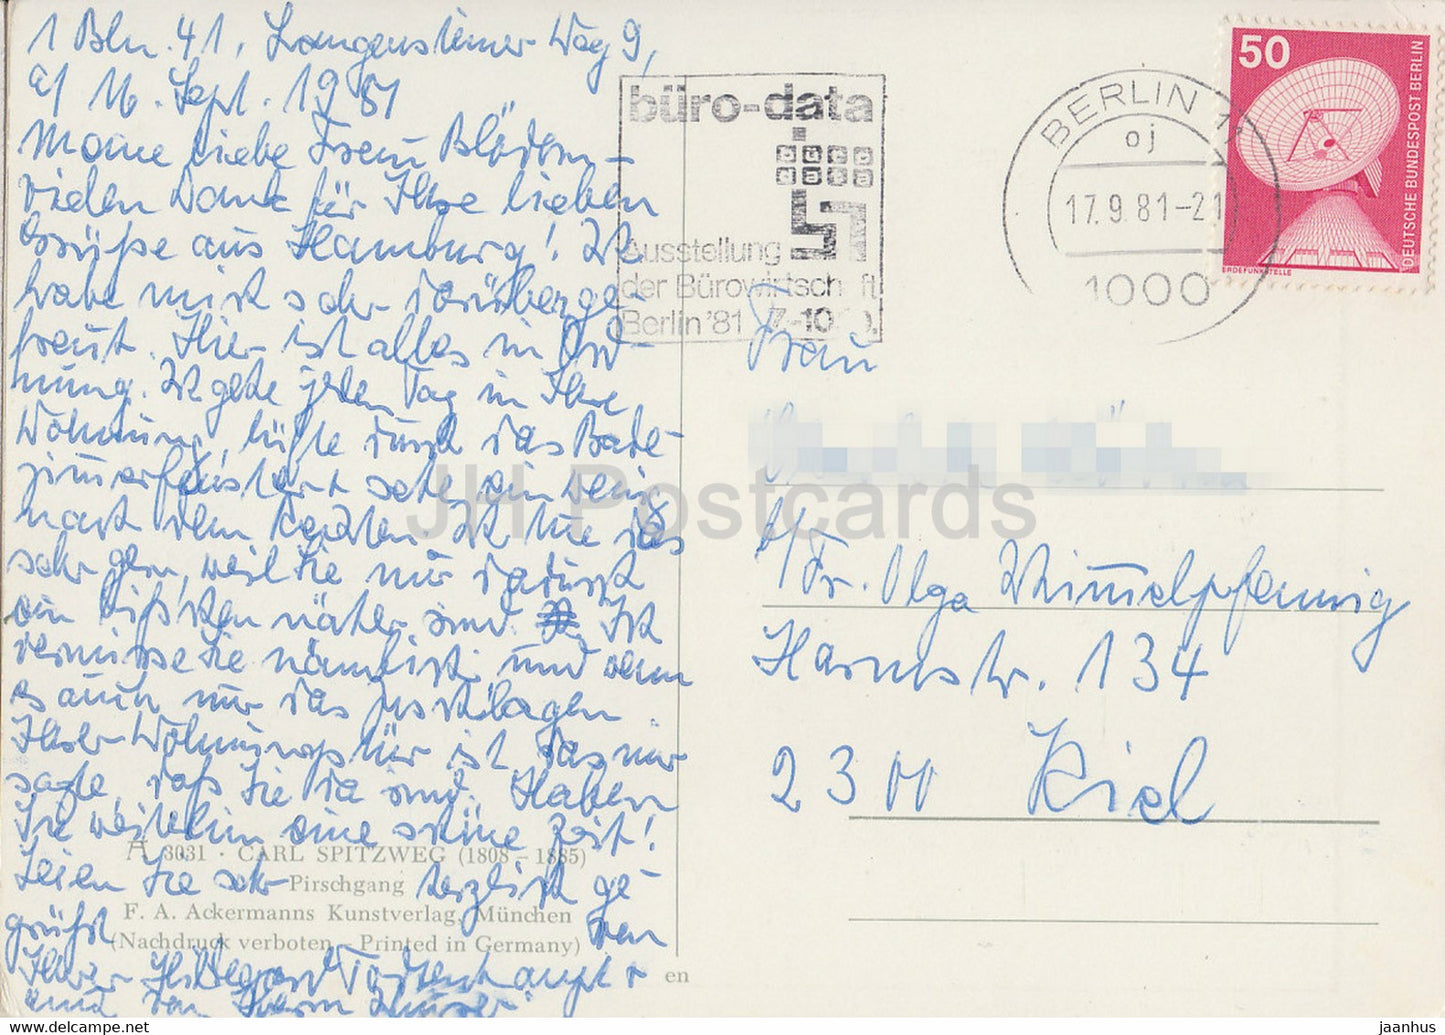 1 Bln. 41, Langensteiner Weg 9,
d 16. Sept. 1981
Meine liebe Frau
vielen Dank für Ihre lieben
Grüße aus Hamburg! Ich
habe mich sehr darüber ge-
freut. Hier ist alles in Ord
nung. Ich gehe jeden Tag in Ihre
Wohnung, lüfte durch das Bade-
zimmerfenster + sehe ein wenig
nach dem Rechten. Ich tue das
sehr gern, weil Sie mir dadurch
ein bißchen näher sind. Ich
vermisse Sie nämlich und wenn
es auch nur das
Ihrer Wohnungstür ist, das mir
sagte, daß Sie da sind. Haben
Sie weiterhin eine schöne Zeit!
Seien Sie sehr herzlich ge-
grüßt von
Ihrer Hildegard
und von
A 3031 · CARL SPITZWEG (1808 – 1885)
Pirschgang
F. A. Ackermanns Kunstverlag, München
(Nachdruck verboten - Printed in Germany)
en
büro-data
büro
data
Ausstellung
der Bürowirtschaft
Berlin '81 7-10
BERLIN 11
oj
17.9.81-21
1000
50
DEUTSCHE BUNDESPOST BERLIN
ERDEFUNKSTELLE
Frau
b/Fr. Olga Schimmelpfennig
Harmsstr. 134
2300 Kiel
JH Postcards
www.delcampe.net
jaanhus